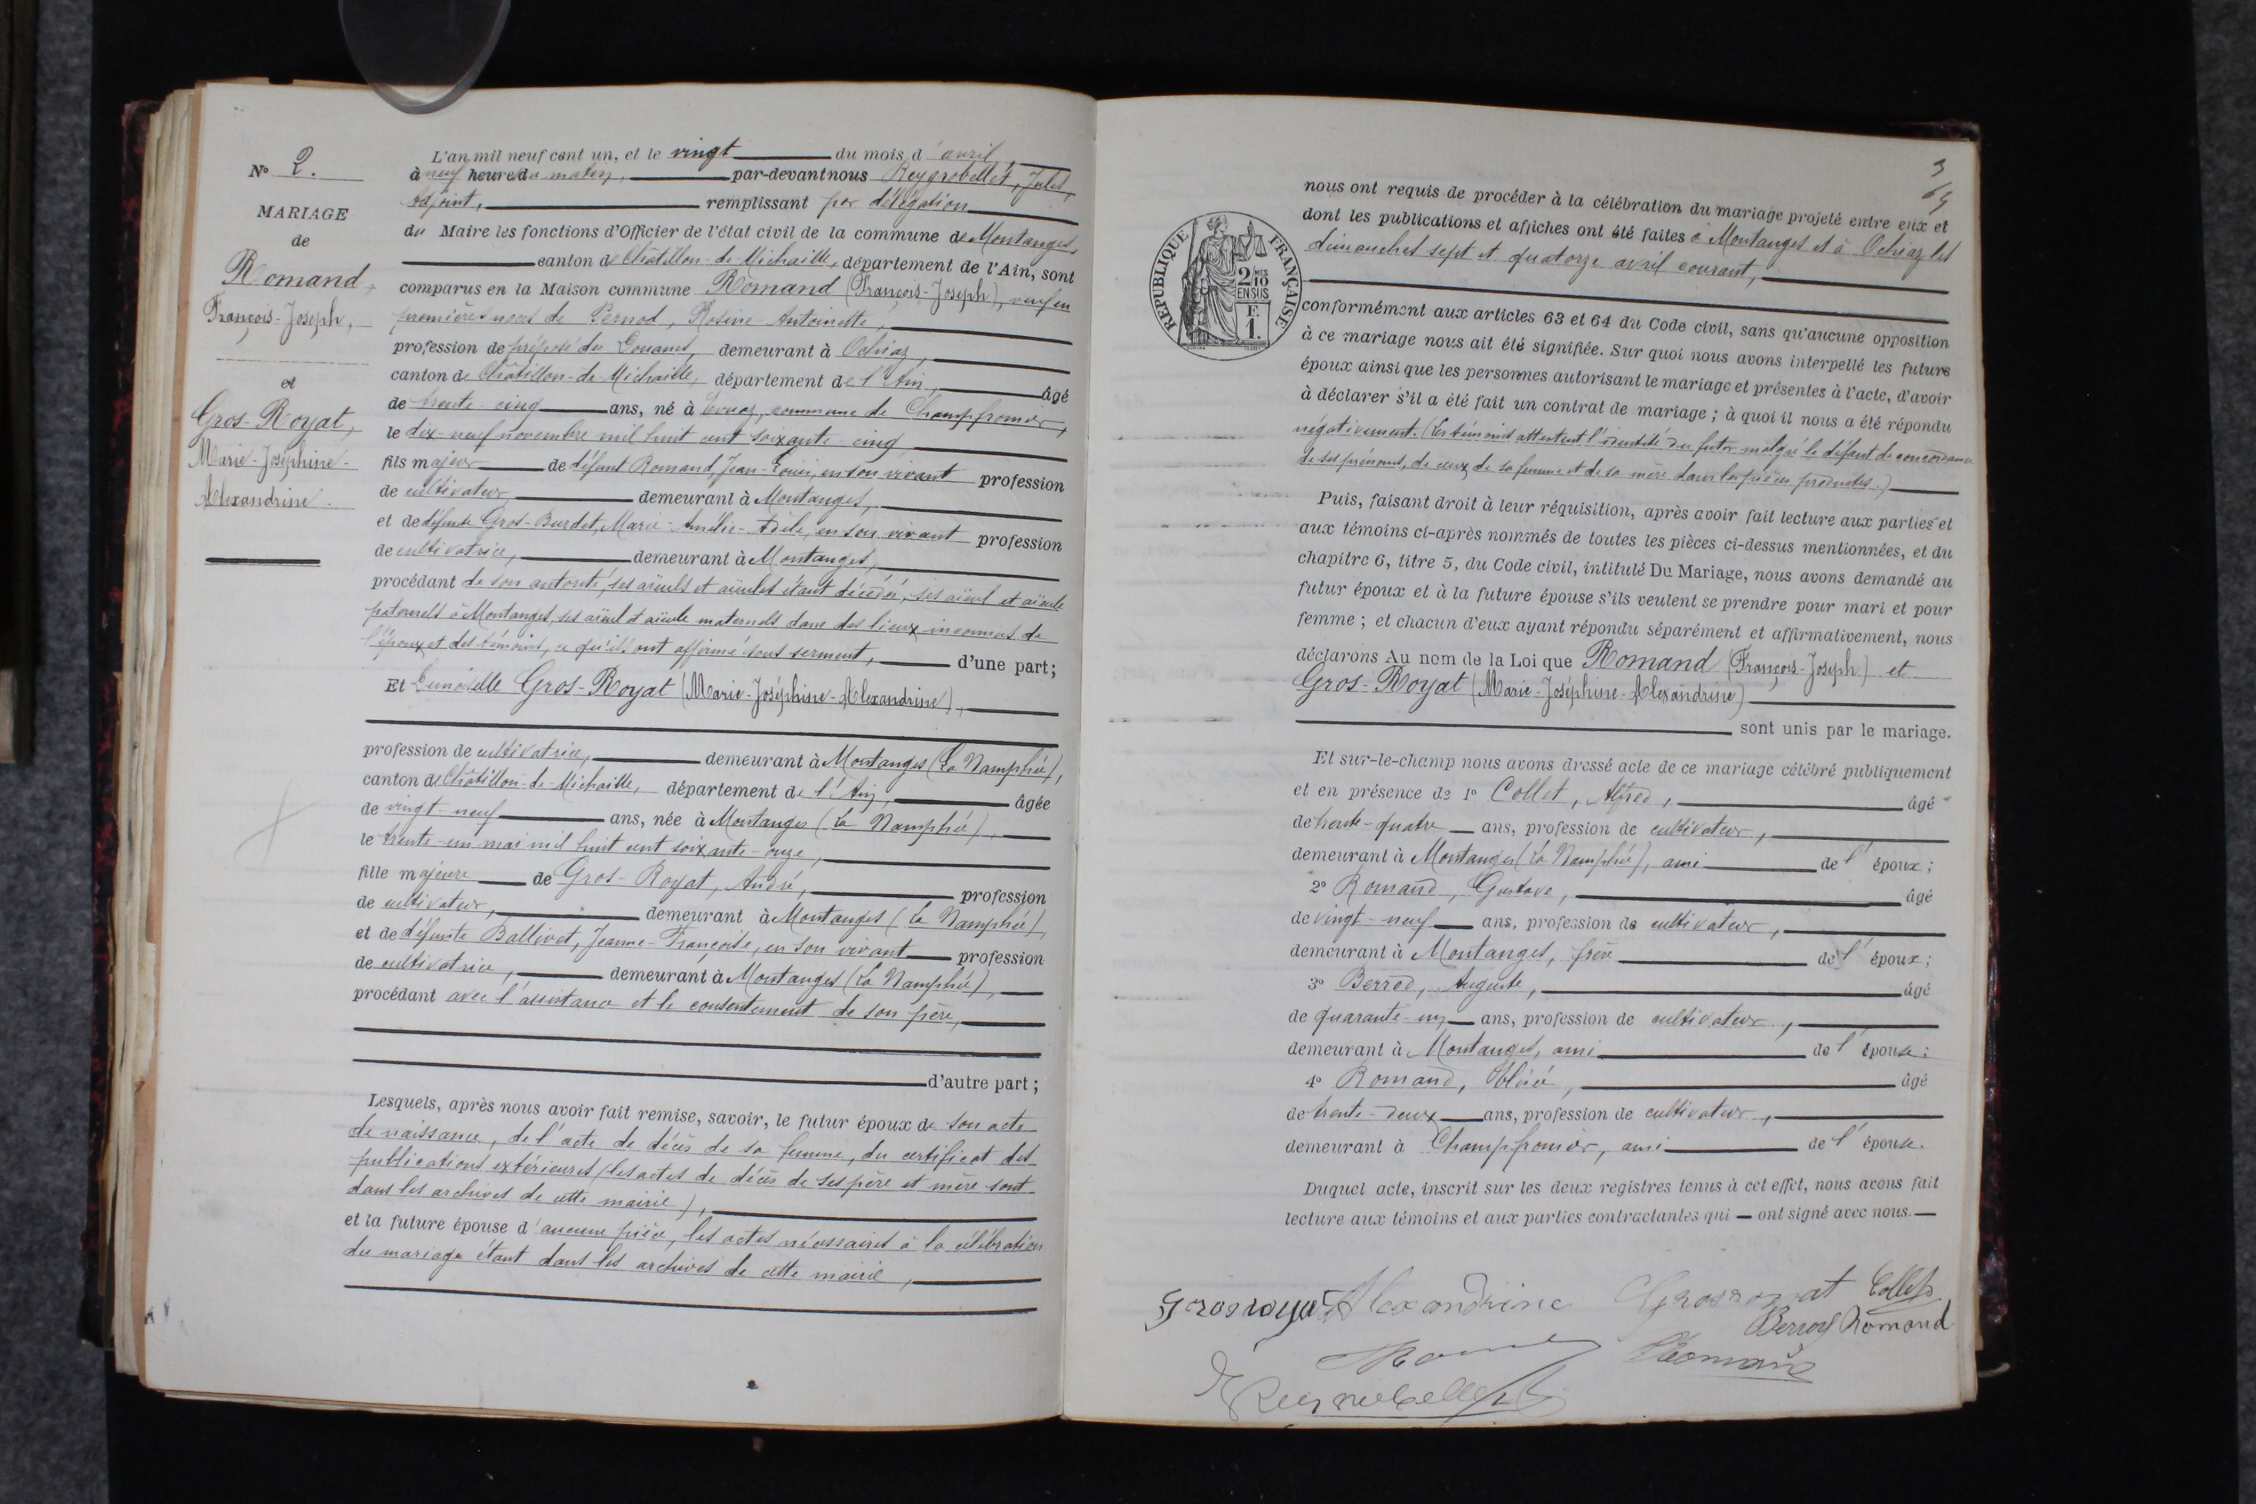 N° 2.
MARIAGE
de
Romand,
François-Joseph,
et
Gros-Royat,
Marie-Joséphine-
Alexandrine.
L'an mil neuf cent un, et le vingt du mois d'avril
à neuf heures du matin, par-devant nous Reygrobellet, Jules,
Adjoint, remplissant par délégation
du Maire les fonctions d'Officier de l'état civil de la commune de Montanges,
canton de Châtillon-de-Michaille, département de l'Ain, sont
comparus en la Maison commune Romand (François-Joseph), veuf en
premières noces de Pernod, Rosine Antoinette,
profession de préposé des Douanes, demeurant à Ochiaz,
canton de Châtillon-de-Michaille, département de l'Ain, âgé
de trente-cinq ans, né à commune de Champfromier,
le dix-neuf novembre mil huit cent soixante-cinq
fils majeur de défunt Romand, Jean-Louis, en son vivant profession
de cultivateur demeurant à Montanges,
et de défunte Gros-Burdet, Marie-Amélie-Adèle, en son vivant profession
de cultivatrice, demeurant à Montanges,
procédant de son autorité, ses aïeuls et aïeules étant décédés, ses aïeul et aïeule
paternels à Montanges, ses aïeul et aïeule maternels dans des lieux inconnus de
l'époux et des témoins, ce qu'ils ont affirmé sous serment, d'une part;
Et Demoiselle Gros-Royat (Marie-Joséphine-Alexandrine),
profession de cultivatrice, demeurant à Montanges (La Namphée),
canton de Châtillon-de-Michaille, département de l'Ain, âgée
de vingt-neuf ans, née à Montanges (La Namphée),
le trente-un mai mil huit cent soixante-onze,
fille majeure de Gros-Royat, André, profession
de cultivateur, demeurant à Montanges (La Namphée),
et de défunte Ballivet, Jeanne-Françoise, en son vivant profession
de cultivatrice, demeurant à Montanges (La Namphée),
procédant avec l'assistance et le consentement de son père,
d'autre part;
Lesquels, après nous avoir fait remise, savoir, le futur époux de son acte
de naissance, de l'acte de décès de sa femme, du certificat des
publications extérieures (les actes de décès de ses père et mère sont
dans les archives de cette mairie),
et la future épouse d'aucune pièce, les actes nécessaires à la célébration
du mariage étant dans les archives de cette mairie,
3
69
RÉPUBLIQUE FRANÇAISE
2 DMES 10 EN SUS
F. 1.
nous ont requis de procéder à la célébration du mariage projeté entre eux et
dont les publications et affiches ont été faites à Montanges et à Ochiaz les
dimanches sept et quatorze avril courant,
conformément aux articles 63 et 64 du Code civil, sans qu'aucune opposition
à ce mariage nous ait été signifiée. Sur quoi nous avons interpellé les futurs
époux ainsi que les personnes autorisant le mariage et présentes à l'acte, d'avoir
à déclarer s'il a été fait un contrat de mariage; à quoi il nous a été répondu
négativement. (Les témoins attestent l'identité du futur malgré le défaut de concordance
de ses prénoms, de ceux de sa femme et de sa mère dans les pièces produites.)
Puis, faisant droit à leur réquisition, après avoir fait lecture aux parties et
aux témoins ci-après nommés de toutes les pièces ci-dessus mentionnées, et du
chapitre 6, titre 5, du Code civil, intitulé Du Mariage, nous avons demandé au
futur époux et à la future épouse s'ils veulent se prendre pour mari et pour
femme; et chacun d'eux ayant répondu séparément et affirmativement, nous
déclarons Au nom de la Loi que Romand (François-Joseph) et
Gros-Royat (Marie-Joséphine-Alexandrine)
sont unis par le mariage.
Et sur-le-champ nous avons dressé acte de ce mariage célébré publiquement
et en présence de 1° Collet, Alfred, âgé
de trente-quatre ans, profession de cultivateur,
demeurant à Montanges (La Namphée), ami de l'époux;
2° Romand, Gustave, âgé
de vingt-neuf ans, profession de cultivateur,
demeurant à Montanges, frère de l'époux;
3° Berrod, Auguste, âgé
de quarante-un ans, profession de cultivateur,
demeurant à Montanges, ami de l'épouse;
4° Romand, âgé
de trente-deux ans, profession de cultivateur,
demeurant à Champfromier, ami de l'épouse.
Duquel acte, inscrit sur les deux registres tenus à cet effet, nous avons fait
lecture aux témoins et aux parties contractantes qui ont signé avec nous.
Grosroyat Alexandrine Grosroyat Collet
Berrod Romand
Romand
Reygrobellet